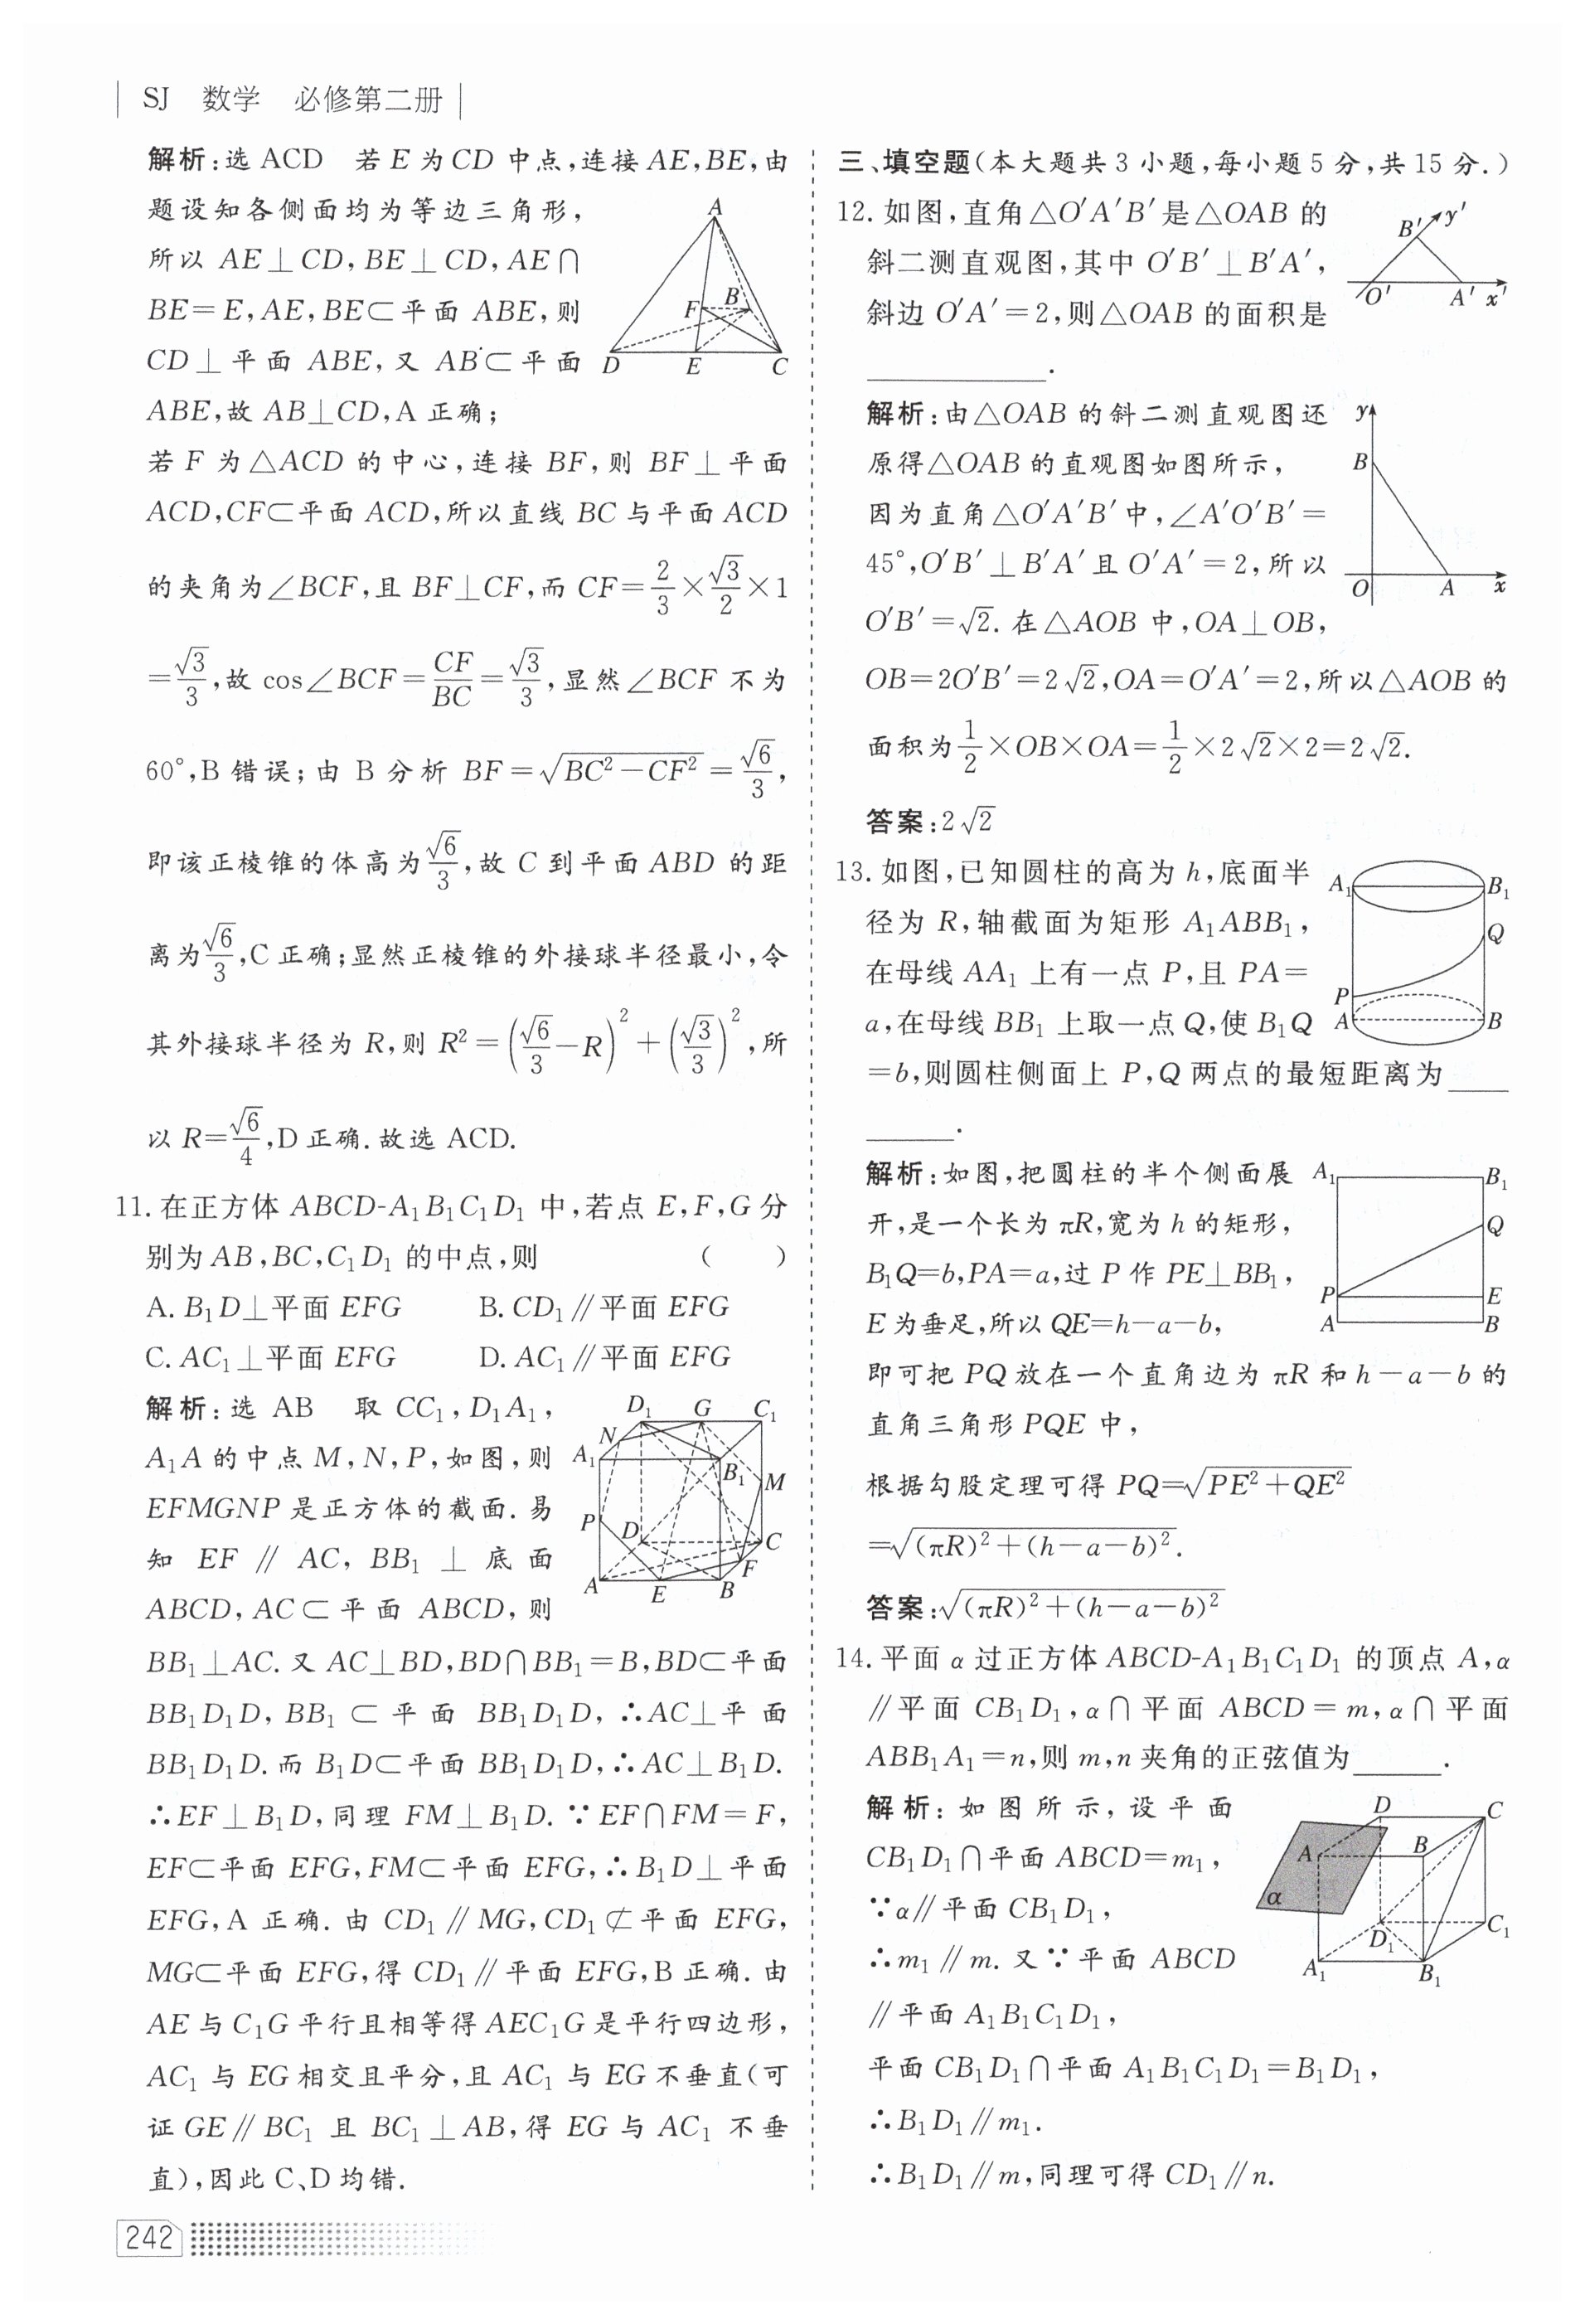 SJ 数学 必修第二册
解析:选 ACD 若 E 为 CD 中点,连接 AE,BE,由
题设知各侧面均为等边三角形,
所以 AE⊥CD,BE⊥CD,AE∩
BE=E,AE,BE⊂平面 ABE,则
CD⊥平面 ABE,又 AB⊂平面
ABE,故 AB⊥CD,A 正确;
A
F
B
D
E
C
若 F 为△ACD 的中心,连接 BF,则 BF⊥平面
ACD,CF⊂平面 ACD,所以直线 BC 与平面 ACD
的夹角为∠BCF,且 BF⊥CF,而 CF=2/3×√3/2×1
=√3/3,故 cos∠BCF=CF/BC=√3/3,显然∠BCF 不为
60°,B 错误;由 B 分析 BF=√(BC²-CF²)=√6/3,
即该正棱锥的体高为√6/3,故 C 到平面 ABD 的距
离为√6/3,C 正确;显然正棱锥的外接球半径最小,令
其外接球半径为 R,则 R²=(√6/3-R)²+(√3/3)²,所
以 R=√6/4,D 正确.故选 ACD.
11. 在正方体 ABCD-A₁B₁C₁D₁ 中,若点 E,F,G 分
别为 AB,BC,C₁D₁ 的中点,则 ( )
A. B₁D⊥平面 EFG B. CD₁∥平面 EFG
C. AC₁⊥平面 EFG D. AC₁∥平面 EFG
解析:选 AB 取 CC₁,D₁A₁,
A₁A 的中点 M,N,P,如图,则
EFMGNP 是正方体的截面.易
知 EF∥AC,BB₁⊥底面
ABCD,AC⊂平面 ABCD,则
D₁ G C₁
N
A₁
B₁
M
P
D
C
F
A
E
B
BB₁⊥AC.又 AC⊥BD,BD∩BB₁=B,BD⊂平面
BB₁D₁D,BB₁⊂平面 BB₁D₁D,∴AC⊥平面
BB₁D₁D.而 B₁D⊂平面 BB₁D₁D,∴AC⊥B₁D.
∴EF⊥B₁D,同理 FM⊥B₁D.∵EF∩FM=F,
EF⊂平面 EFG,FM⊂平面 EFG,∴B₁D⊥平面
EFG,A 正确.由 CD₁∥MG,CD₁⊄平面 EFG,
MG⊂平面 EFG,得 CD₁∥平面 EFG,B 正确.由
AE 与 C₁G 平行且相等得 AEC₁G 是平行四边形,
AC₁ 与 EG 相交且平分,且 AC₁ 与 EG 不垂直(可
证 GE∥BC₁ 且 BC₁⊥AB,得 EG 与 AC₁ 不垂
直),因此 C、D 均错.
三、填空题(本大题共 3 小题,每小题 5 分,共 15 分.)
12. 如图,直角△O′A′B′是△OAB 的
斜二测直观图,其中 O′B′⊥B′A′,
斜边 O′A′=2,则△OAB 的面积是
______.
B′ y′
O′ A′ x′
解析:由△OAB 的斜二测直观图还
原得△OAB 的直观图如图所示,
因为直角△O′A′B′中,∠A′O′B′=
45°,O′B′⊥B′A′且 O′A′=2,所以
O′B′=√2.在△AOB 中,OA⊥OB,
y
B
O A x
OB=2O′B′=2√2,OA=O′A′=2,所以△AOB 的
面积为1/2×OB×OA=1/2×2√2×2=2√2.
答案:2√2
13. 如图,已知圆柱的高为 h,底面半
径为 R,轴截面为矩形 A₁ABB₁,
在母线 AA₁ 上有一点 P,且 PA=
a,在母线 BB₁ 上取一点 Q,使 B₁Q
=b,则圆柱侧面上 P,Q 两点的最短距离为__
___.
A₁ B₁
Q
P
A B
解析:如图,把圆柱的半个侧面展
开,是一个长为 πR,宽为 h 的矩形,
B₁Q=b,PA=a,过 P 作 PE⊥BB₁,
E 为垂足,所以 QE=h-a-b,
A₁ B₁
Q
P E
A B
即可把 PQ 放在一个直角边为 πR 和 h-a-b 的
直角三角形 PQE 中,
根据勾股定理可得 PQ=√(PE²+QE²)
=√((πR)²+(h-a-b)²).
答案:√((πR)²+(h-a-b)²)
14. 平面 α 过正方体 ABCD-A₁B₁C₁D₁ 的顶点 A,α
∥平面 CB₁D₁,α∩平面 ABCD=m,α∩平面
ABB₁A₁=n,则 m,n 夹角的正弦值为___.
解析:如图所示,设平面
CB₁D₁∩平面 ABCD=m₁,
∵α∥平面 CB₁D₁,
∴m₁∥m.又∵平面 ABCD
∥平面 A₁B₁C₁D₁,
D C
A B
α
D₁ C₁
A₁ B₁
平面 CB₁D₁∩平面 A₁B₁C₁D₁=B₁D₁,
∴B₁D₁∥m₁.
∴B₁D₁∥m,同理可得 CD₁∥n.
242